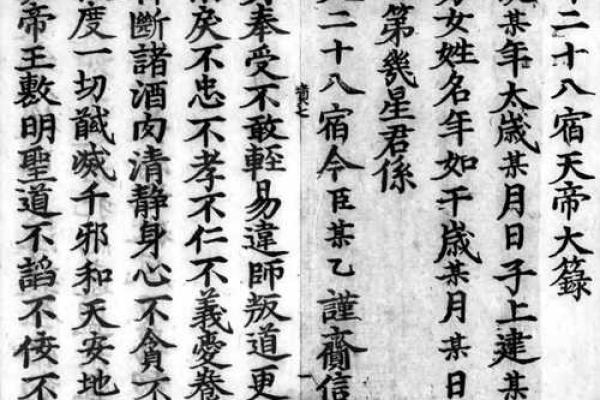 二十八宿天帝大籙
某年太歲某月日子上建某
女姓名年如干歲某月某日
第幾星君係
二十八宿今臣某乙謹齎信
奉受不敢輕易違師叛道更
矣不忠不孝不仁不義愛眷
斷諸酒肉清静身心不貪不
度一切馘滅千邪和天安地
帝王敷明聖道不謟不佞不